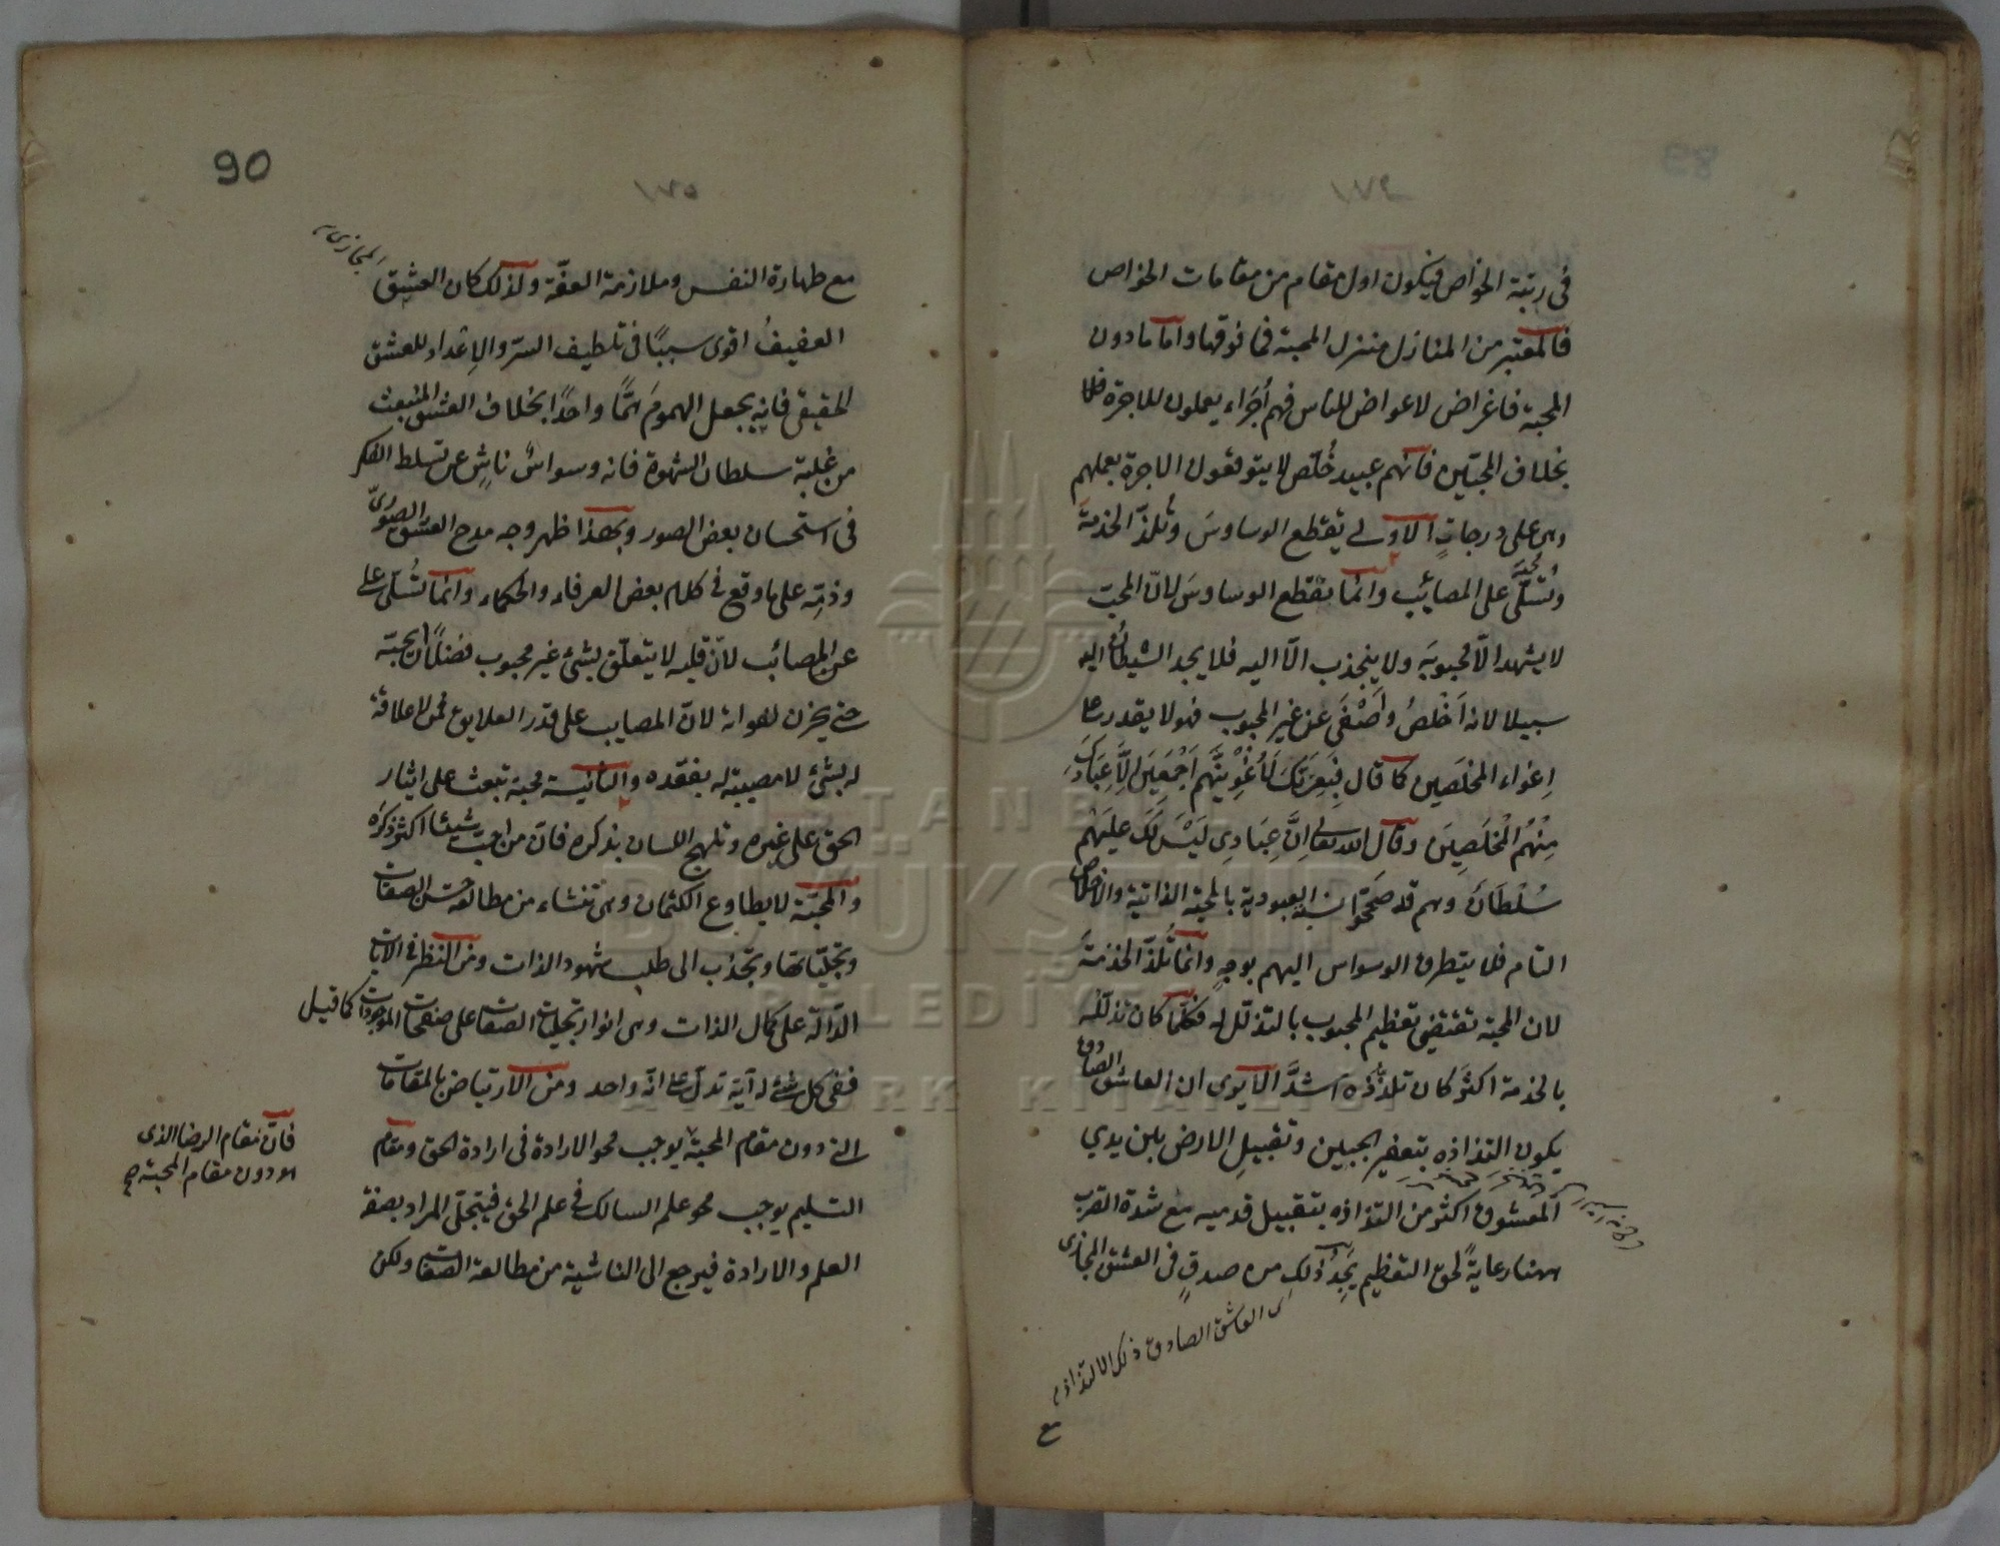 في رتبة الخواص فيكون اول مقام من مقامات الخواص
فالمعتبر من المنازل منزل المحبة فما فوقها واما ما دون
المحبة فاغراض لاعواض للناس فهم أجراء يعملون للاجرة
بخلاف المحبين فانهم عبيد خلص لا يتوقعون الاجرة بعملهم
وهى على درجات الاولى يقطع الوساوس وتلذ الخدمة
وتسلى على المصائب وانما يقطع الوساوس لان المحب
لا يشهد الا محبوبه ولا ينجذب الا اليه فلا يجد الشيطان اليه
سبيلا لانه أخلص وأصفى عن غير المحبوب فهو لا يقدر على
اغواء المخلصين كما قال فبعزتك لأغوينهم أجمعين إلا عبادك
منهم المخلصين وقال الله تعالى إن عبادي ليس لك عليهم
سلطان وهم قد صححوا نسبة العبودية بالمحبة الذاتية والاخلاص
التام فلا يتطرق الوسواس اليهم بوجه وانما تلذ الخدمة
لان المحبة تقتضي تعظيم المحبوب بالتذلل له فكلما كان تذلله
بالخدمة اكثر كان تلذذه أشد الا يرى ان العاشق الصادق
يكون التذاذه بتعفير الجبين وتقبيل الارض بين يدي
المعشوق اكثر من التذاذه بتقبيل قدميه مع شدة القرب
ههنا رعاية لحق التعظيم يجد ذلك من صدق في العشق المجازى
العاشق الصادق ذلك الالتذاذ
90
مع طهارة النفس وملازمة العفة ولذلك كان العشق المجازى
العفيف اقوى سببا في تلطيف السر والاعداد للعشق
الحقيقى فانه يجعل الهموم هما واحدا بخلاف العشق المنبعث
من غلبة سلطان الشهوة فانه وسواس ناش عن تسلط الفكر
في استحسان بعض الصور وبهذا ظهر وجه مدح العشق الصورى
وذمه على ما وقع في كلام بعض العرفاء والحكماء وانما تسلى على
عن المصائب لان قلبه لا يتعلق بشئ غير محبوب فضلا ان يحبه
حتى يحزن لفواته لان المصايب على قدر العلايق فمن لا علاقة
له بشئ لا مصيبة له بفقده والثانية محبة تبعث على ايثار
الحق على غيره وتلهج اللسان بذكره فان من احب شيئا اكثر ذكره
والمحبة لا يطاوع الكتمان وهى تنشاء من مطالعة حسن الصفات
وتجلياتها وتجذب الى طلب شهود الذات ومن النظر في الآيات
الدالة على كمال الذات وهى انوار تجليات الصفات على صفحات الموجودات كما قيل
ففى كل شئ له آية تدل على انه واحد ومن الارتياض بالمقامات
التى دون مقام المحبة يوجب محو الارادة في ارادة الحق ومقام
التسليم يوجب محو علم السالك في علم الحق فيتجلى المراد بصفة
العلم والارادة فيرجع الى الناشية من مطالعة الصفات ولكن
فان مقام الرضا الذى
هو دون مقام المحبة صح